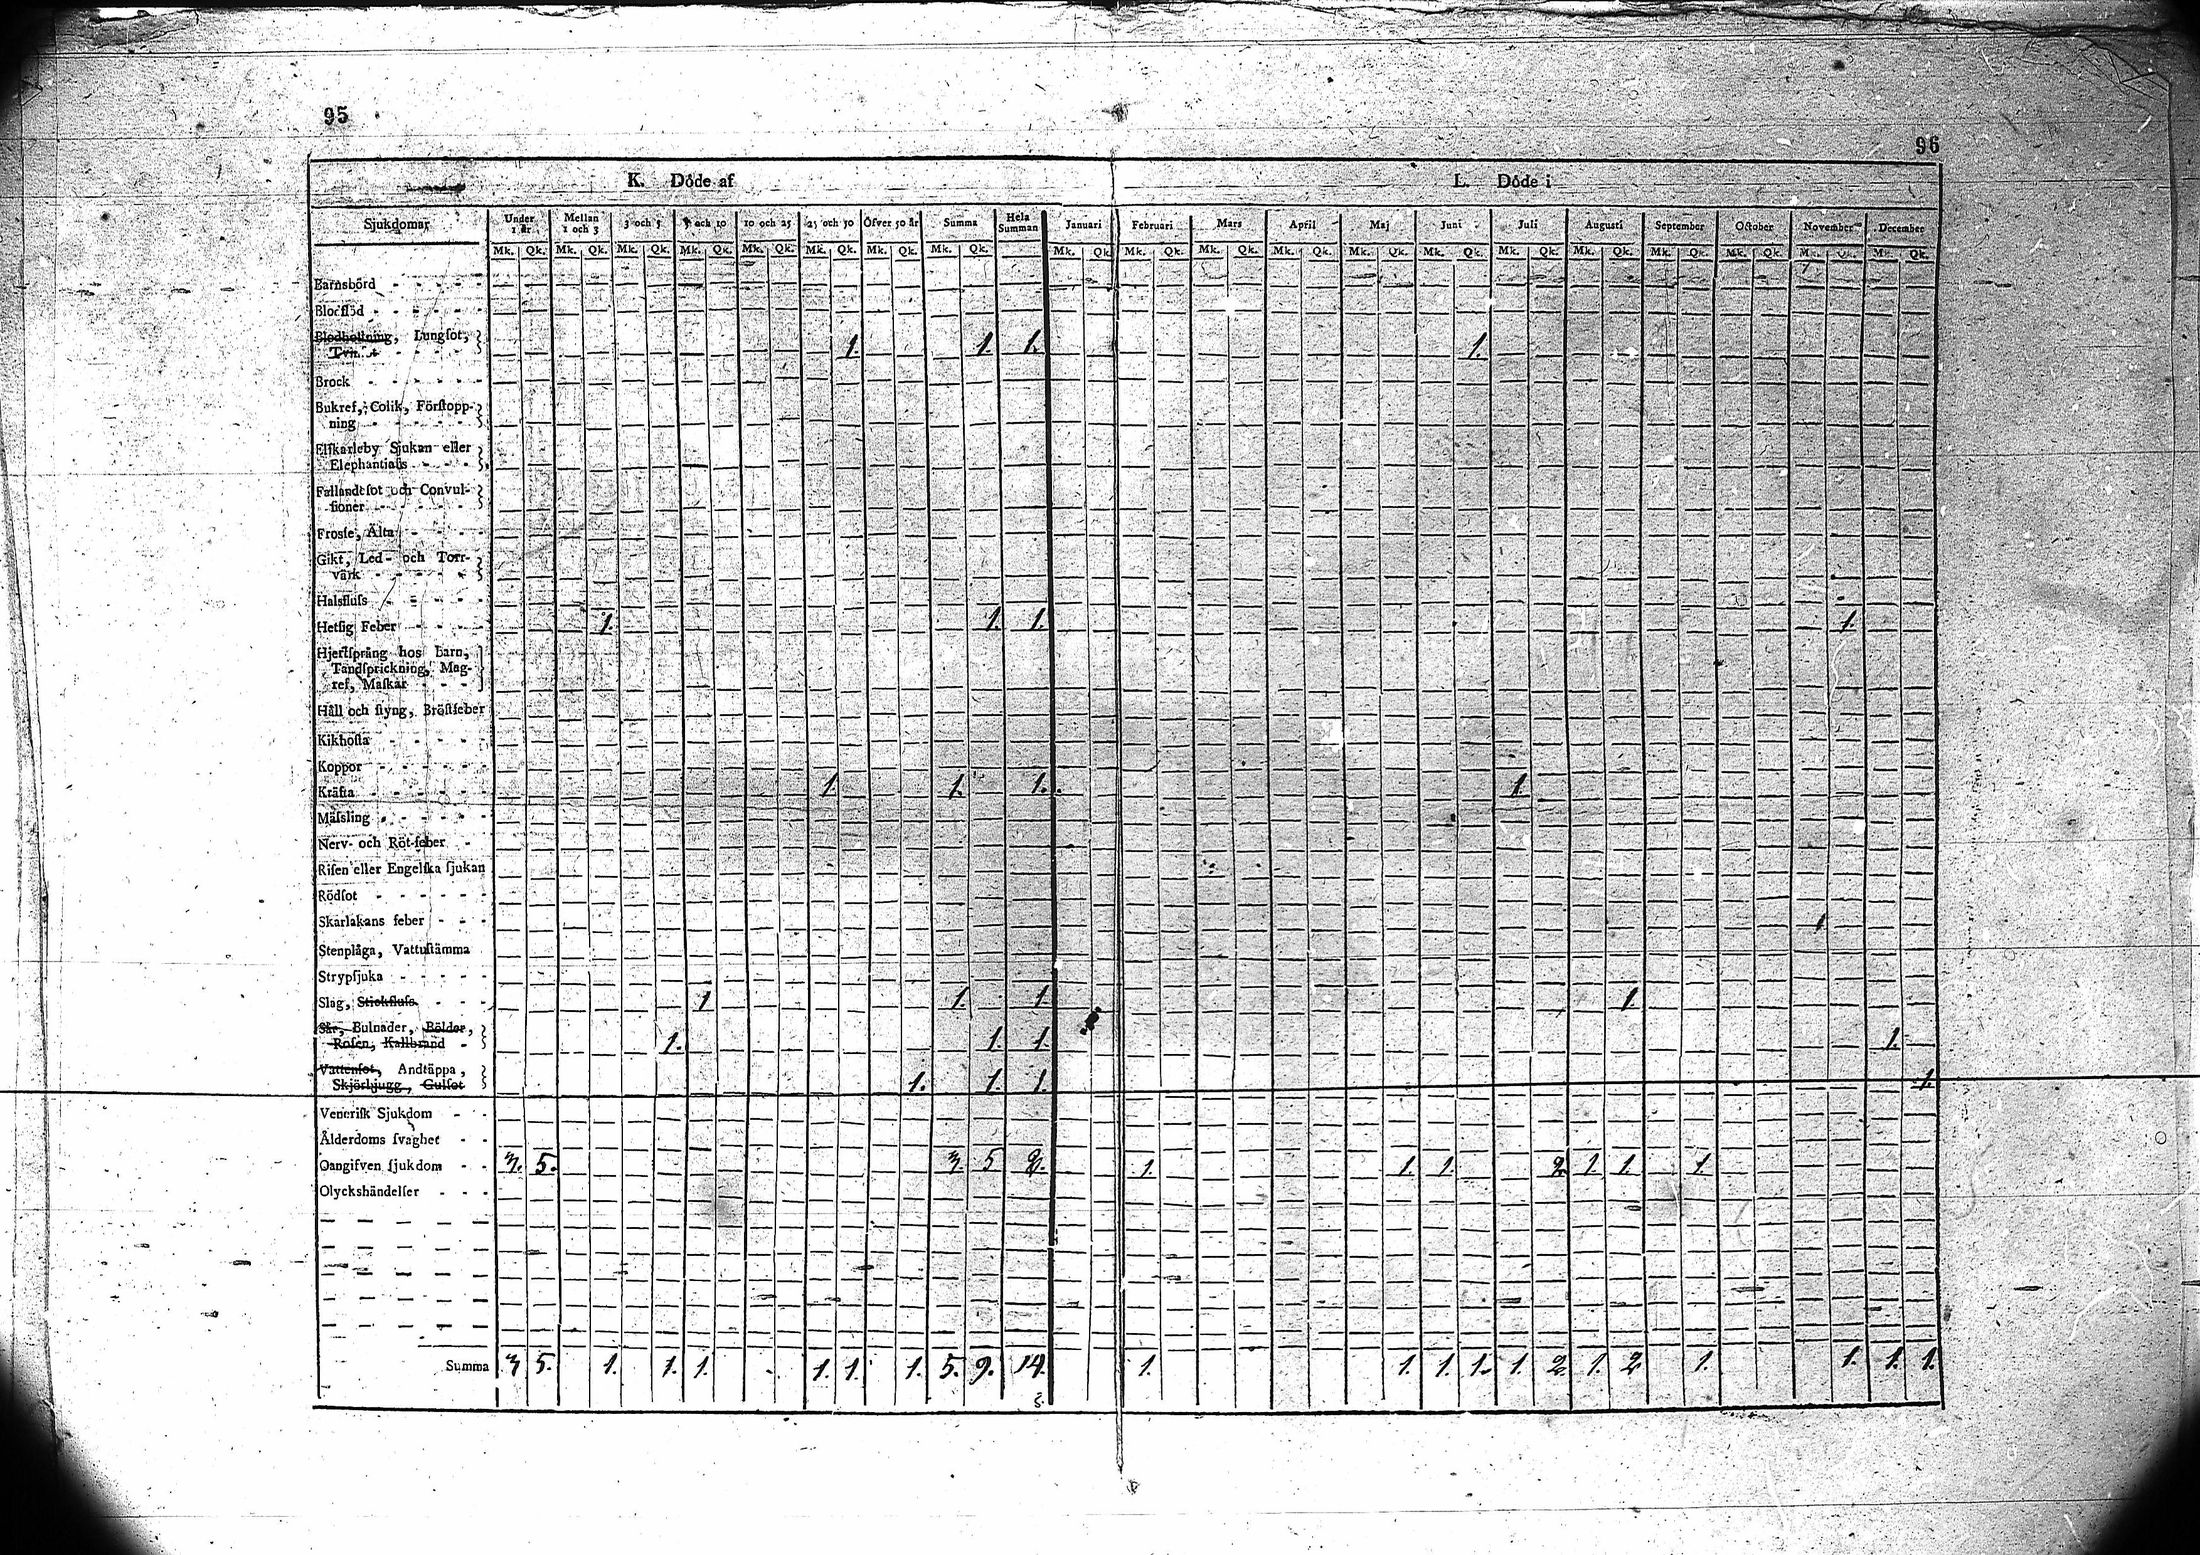 95
96
K. Döde af
L. Döde i
Sjukdomar Under 1 år Mellan 1 och 3 3 och 5 5 och 10 10 och 25 25 och 50 Öfver 50 år Summa Hela Summan Januari Februari Mars April Maj Juni Juli Augusti September October November December
Mk. Qk. Mk. Qk. Mk. Qk. Mk. Qk. Mk. Qk. Mk. Qk. Mk. Qk. Mk. Qk. Mk. Qk. Mk. Qk. Mk. Qk. Mk. Qk. Mk. Qk. Mk. Qk. Mk. Qk. Mk. Qk. Mk. Qk. Mk. Qk. Mk. Qk. Mk. Qk.
Barnsbörd
Blodflöd
Blodhostning, Lungſot,
Tvin 1. 1. 1. 1.
Brock
Bukref, Colik, Förſtopp-
ning
Elfkarleby Sjukan eller
Elephantiaſis
Fallandeſot och Convul-
ſioner
Frosſe, Älta
Gikt, Led- och Torr-
värk
Halsfluſs
Hetſig Feber 1. 1. 1. 1.
Hjertſprång hos barn,
Tandſprickning, Mag-
ref, Maſkar
Håll och ſtyng, Bröſtfeber
Kikhoſta
Koppor
Kräfta 1. 1. 1. 1.
Mäſsling
Nerv- och Röt-feber
Riſen eller Engelſka ſjukan
Rödſot
Skarlakans feber
Stenplåga, Vattuſtämma
Strypſjuka
Slag, Stickfluſs 1 1. 1. 1.
Sår, Bulnader, Bölder,
Roſen, Kallbrand 1. 1. 1. 1.
Vattenſot, Andtäppa,
Skjörbjugg, Gulſot 1. 1. 1. 1.
Veneriſk Sjukdom
Ålderdoms ſvaghet
Oangifven ſjukdom 3. 5. 3. 5 1. 1. 1. 2. 1. 1. 1.
Olyckshändelſer
Summa 3 5. 1. 1. 1. 1. 1. 1. 5. 9. 14. 1. 1. 1. 1. 1. 2. 1. 2. 1. 1. 1. 1.